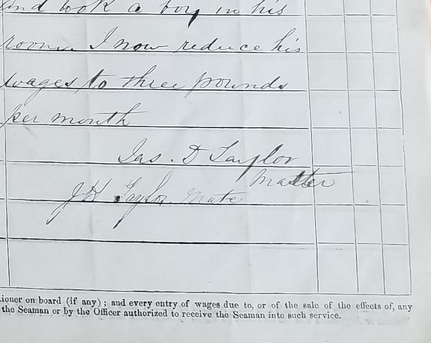 and took a boy in his
room. I now reduce his
wages to three pounds
per month
Jas. D Taylor
Master
J H Mate
tioner on board (if any); and every entry of wages due to, or of the sale of the effects of, any
the Seaman or by the Officer authorized to receive the Seaman into such service.